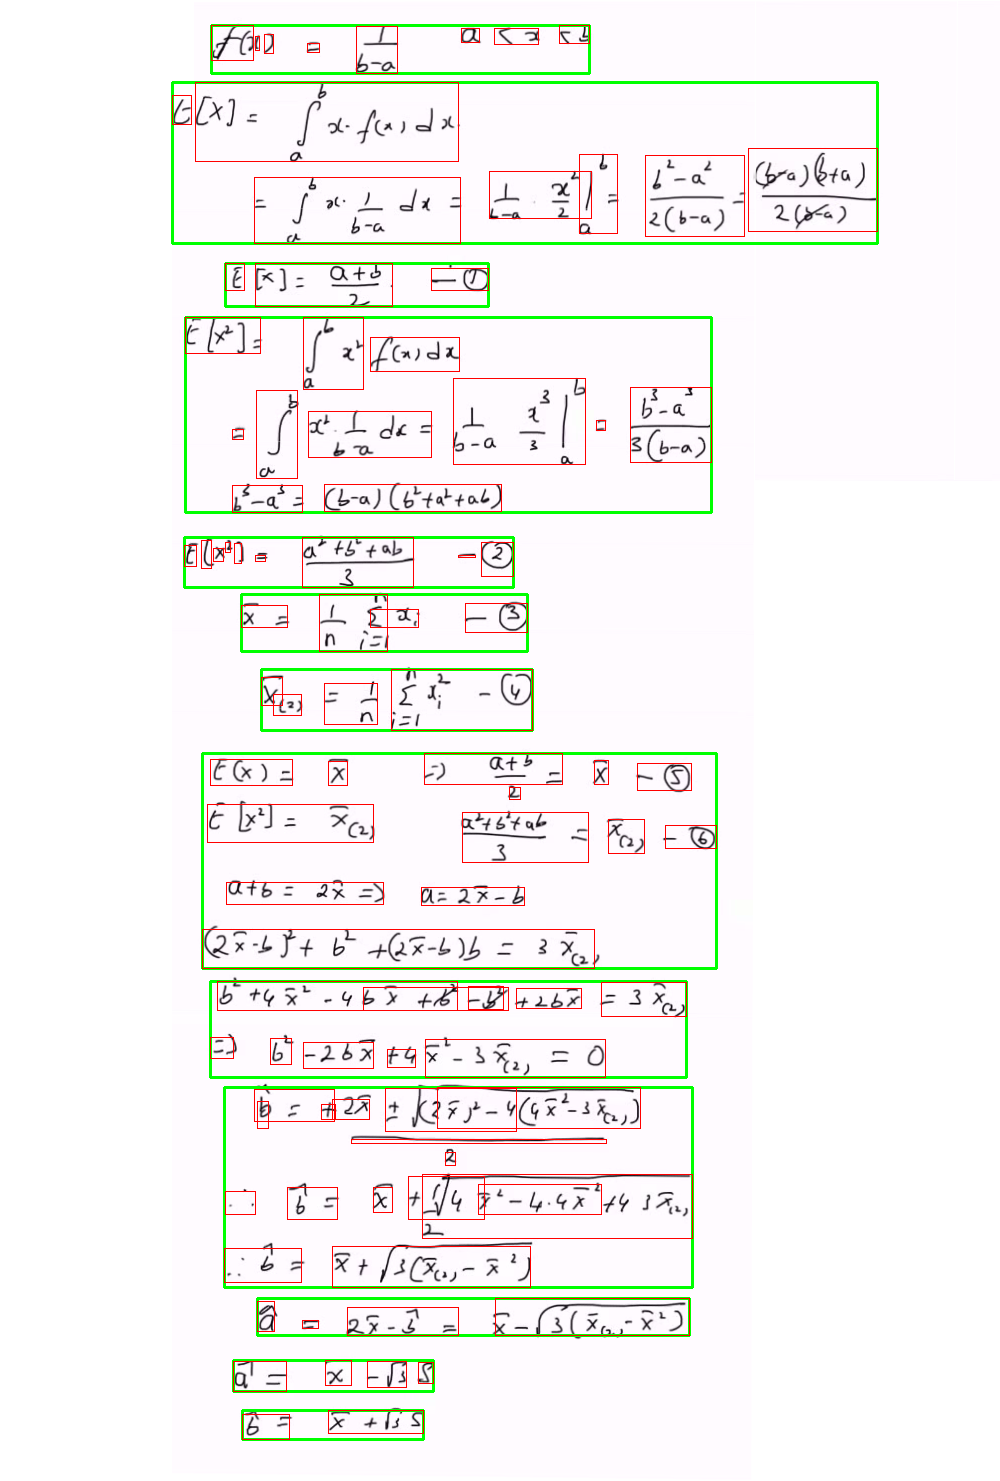 f(x) = 1/(b-a)   a < x < b
E[X] = ∫_a^b x. f(x) dx
= ∫_a^b x. 1/(b-a) dx = 1/(b-a) . x²/2 |_a^b = (b²-a²)/(2(b-a)) = (b-a)(b+a)/(2(b-a))
E[x] = (a+b)/2   - ①
E[x²] = ∫_a^b x² f(x) dx
= ∫_a^b x². 1/(b-a) dx = 1/(b-a) x³/3 |_a^b = (b³-a³)/(3(b-a))
b³-a³ = (b-a)(b²+a²+ab)
E(x²) = (a²+b²+ab)/3   - ②
x̄ = 1/n Σ_{i=1}^n x_i   - ③
x̄_(2) = 1/n Σ_{i=1}^n x_i²   - ④
E(x) = x̄ => (a+b)/2 = x̄   - ⑤
E[x²] = x̄_(2)   (a²+b²+ab)/3 = x̄_(2)   - ⑥
a+b = 2x̄ => a = 2x̄-b
(2x̄-b)² + b² + (2x̄-b)b = 3x̄_(2)
b² + 4x̄² - 4bx̄ + b² - b² + 2bx̄ = 3x̄_(2)
=> b² - 2bx̄ + 4x̄² - 3x̄_(2) = 0
b̂ = (+2x̄ ± √((2x̄)² - 4(4x̄²-3x̄_(2))))/2
∴ b̂ = x̄ + 1/2 √(4x̄² - 4.4x̄² + 4 3x̄_(2))
∴ b̂ = x̄ + √(3(x̄_(2) - x̄²))
â = 2x̄ - b̂ = x̄ - √(3(x̄_(2) - x̄²))
â = x̄ - √3 S
b̂ = x̄ + √3 S